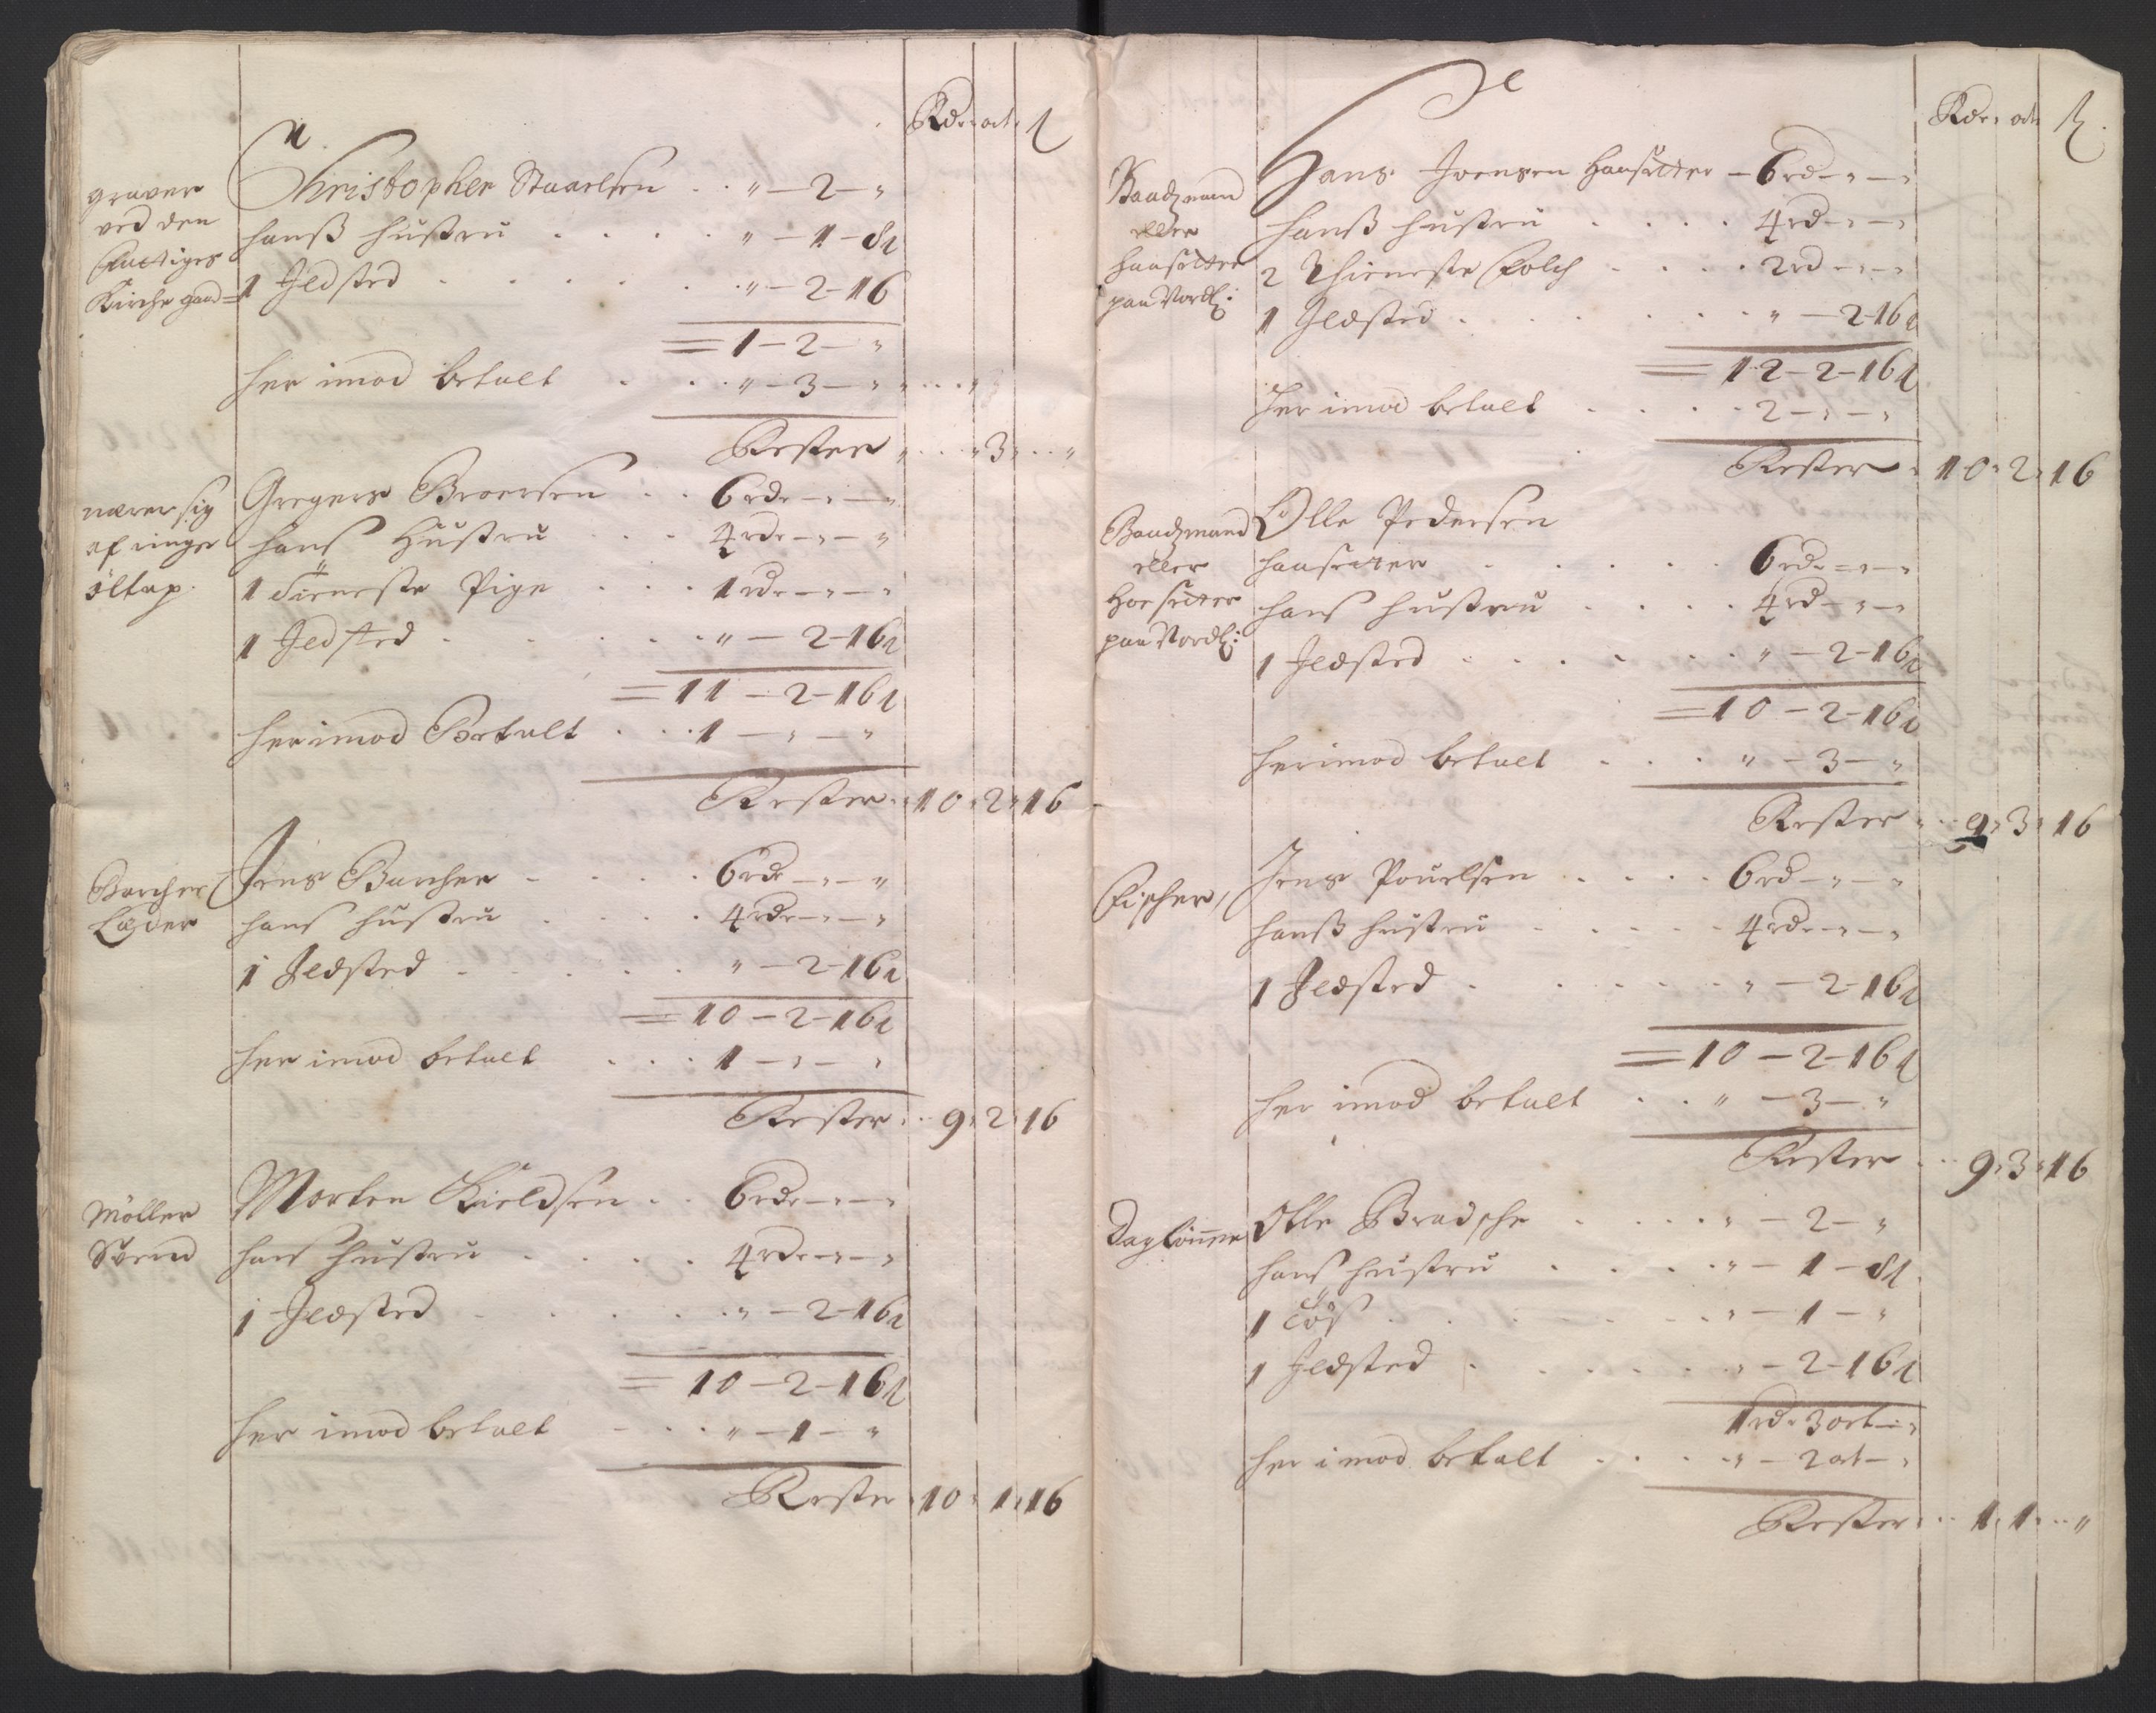 Rdr ort ß
graver
ved den
Fattiges
Kirche gaard
Christopher Staaelsen . . " - 2 - "
hanß hustru . . . . " - 1 - 8 ß
1 Jldsted . . . . " - 2 - 16
= 1 - 2 - "
her imod betalt . . . " - 3 - "
Rester . . " . . 3 . . "
nærer sig
af ringe
öltap.
Gregers Broersen . . 6 rdr - " - "
hans Hustru . . . 4 rdr - " - "
1 Tieneste Pige . . . 1 rdr - " - "
1 Jldsted . . . . " - 2 - 16 ß
= 11 - 2 - 16 ß
her imod Betalt . . . 1 - " - "
Rester . . 10 . 2 . 16
Barcher
Læder
Jens Barcher . . . . 6 rdr - " - "
hans hustru . . . . 4 rdr - " - "
1 Jldsted . . . . " - 2 - 16 ß
= 10 - 2 - 16 ß
her imod betalt . . . 1 - " - "
Rester . . 9 . 2 . 16
Möller
Svend
Morten Kieldsen . . 6 rdr - " - "
hans hustru . . . . 4 rdr - " - "
1 Jldsted . . . . " - 2 - 16 ß
= 10 - 2 - 16 ß
her imod betalt . . . " - 1 - "
Reste . 10 . 1 . 16
Rdr ort ß
Baadzmand
eller
haasetter
paa Nordl:
Hans Joensen Haasetter - 6 rd - " - "
hanß hustru . . . . 4 rd - " - "
2 Thieneste Folch . . . . 2 rd - " - "
1 Jldsted . . . . " - 2 - 16 ß
= 12 - 2 - 16 ß
her imod betalt . . . . 2 - " - "
Rester . 10 . 2 . 16
Baadzmand
eller
Hoesetter
paa Nordl:
Olle Pedersen
haasetter . . . . . 6 rdr - " - "
hans hustru . . . . 4 rd - " - "
1 Jldsted . . . . " - 2 - 16 ß
= 10 - 2 - 16 ß
her imod betalt . . . . " - 3 - "
Rester . . 9 . 3 . 16
Fischer
Jens Pouelsen . . . . 6 rd - " - "
hanß hustru . . . . 4 rdr - " - "
1 Jldsted . . . . " - 2 - 16 ß
= 10 - 2 - 16 ß
her imod betalt . . . " - 3 - "
Rester . . 9 . 3 . 16
Daglönner
Olle Bradsche . . . . " - 2 - "
hans hustru . . . . " - 1 - 8 ß
1 Tös . . . . " - 1 - "
1 Jldsted . . . . " - 2 - 16 ß
1 rdr 3 ort - "
her imod betalt . . . . " - 2 ort - "
Rester . . 1 . 1 . . "